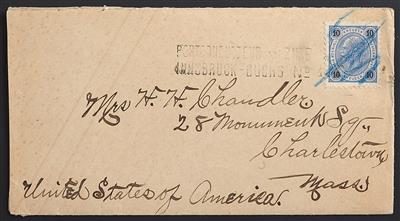 10 10
INNSBRUCK-BUCHS No
Mrs H. H. Chandler.
28 Monument Sq.,
Charlestown
Mass.
United States of America.